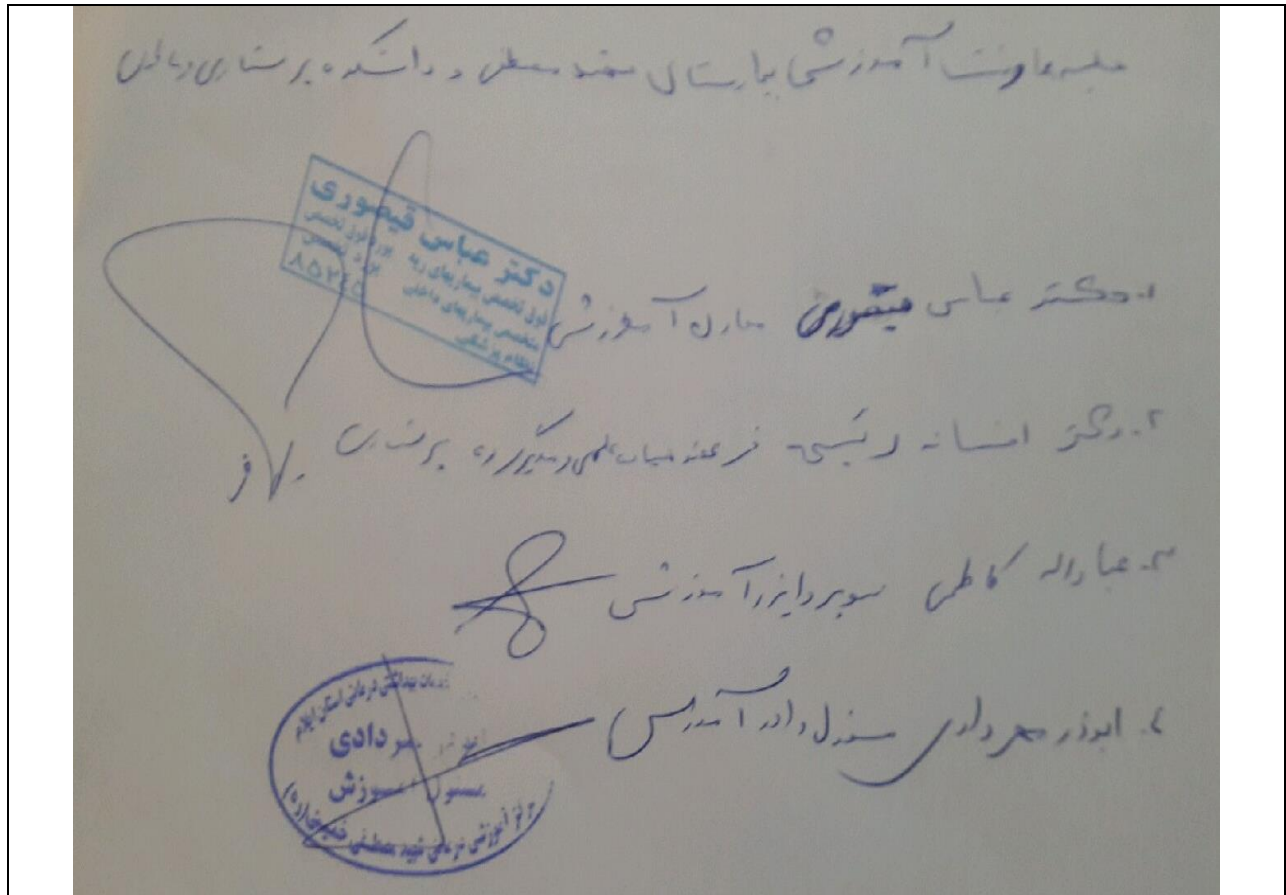 جلسه معاونت آموزشی بیمارستان شهید مصطفی و دانشکده پرستاری و مامایی
دکتر عباس قیصوری
فوق تخصص بیماریهای ریه بورد فوق تخصصی
متخصص بیماریهای داخلی بورد تخصصی
نظام پزشکی
۱. دکتر عباس قیصوری معاون آموزشی
۲. دکتر افسانه رئیسی فر عضو هیات علمی و مدیر گروه پرستاری
۳. عباداله کاظمی سوپروایزر آموزشی
۴. ابوذر مهردادی مسئول واحد آموزش
خدمات بهداشتی درمانی استان ایلام
مهردادی
مسئول آموزش
مرکز آموزشی درمانی شهید مصطفی خمینی (ره)